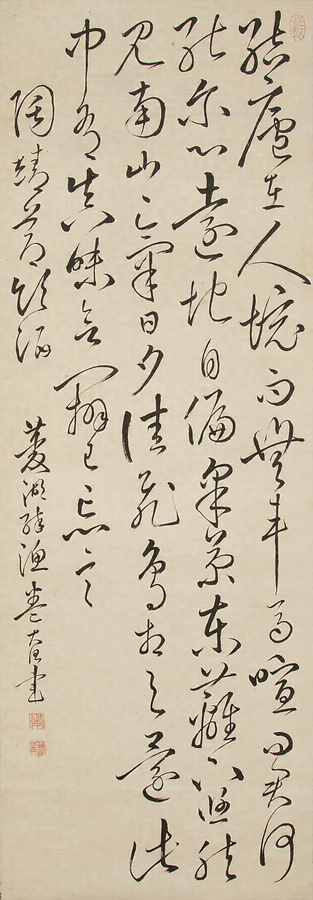 結廬在人境而無車馬喧問君何
能尓心遠地自偏采菊東籬下悠然
見南山々氣日夕佳飛鳥相与還此
中有真味欲辨已忘言
陶靖節飲酒 菱湖醉漁巻大任書